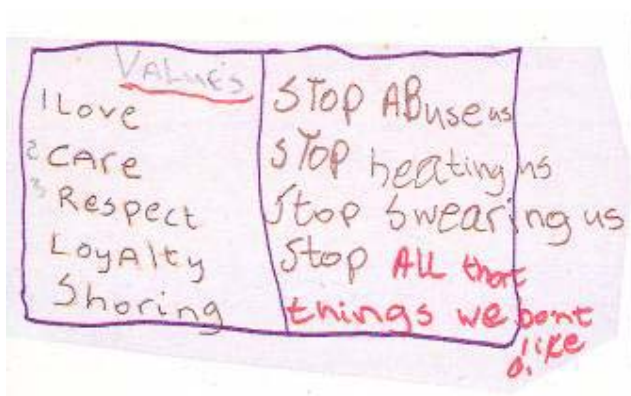 VALUES
1 Love
2 CARe
3 Respect
LoyAlty
Shoring
STOP ABuse us
STOP beating us
Stop Swearing us
Stop ALL that
things we Dont
like